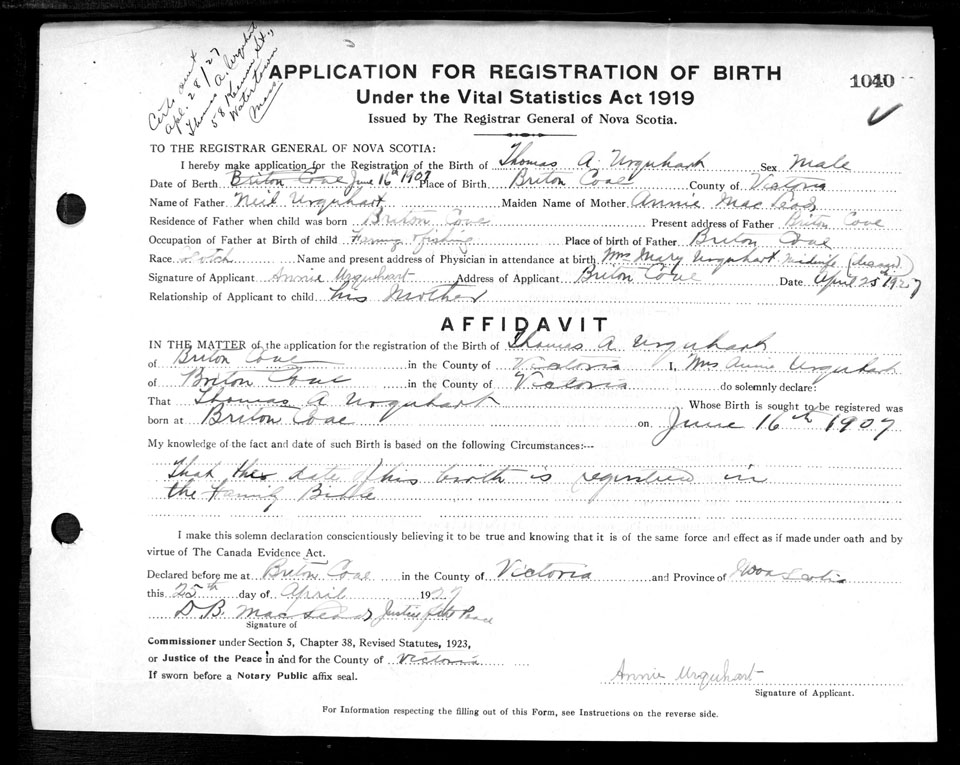 Certs sent
Apl. 28/27
Thomas A. Urquhart
58 St.,
Watertown
Mass
APPLICATION FOR REGISTRATION OF BIRTH
1040
Under the Vital Statistics Act 1919
Issued by The Registrar General of Nova Scotia.
TO THE REGISTRAR GENERAL OF NOVA SCOTIA:
I hereby make application for the Registration of the Birth of Thomas A. Urquhart Sex Male
Date of Birth Briton Cove June 16th 1907 Place of Birth Briton Cove County of Victoria
Name of Father Neil Urquhart Maiden Name of Mother Annie Mac Leod
Residence of Father when child was born Briton Cove Present address of Father Briton Cove
Occupation of Father at Birth of child Farming & fishing Place of birth of Father Briton Cove
Race Scotch Name and present address of Physician in attendance at birth Mrs Mary Urquhart Midwife (deceased)
Signature of Applicant Annie Urquhart Address of Applicant Briton Cove Date April 25th 1927
Relationship of Applicant to child his Mother
AFFIDAVIT
IN THE MATTER of the application for the registration of the Birth of Thomas A Urquhart
of Briton Cove in the County of Victoria I, Mrs Annie Urquhart
of Briton Cove in the County of Victoria do solemnly declare:
That Thomas A Urquhart Whose Birth is sought to be registered was
born at Briton Cove on June 16th 1907
My knowledge of the fact and date of such Birth is based on the following Circumstances:--
That the date of his birth is registered in
the Family Bible
I make this solemn declaration conscientiously believing it to be true and knowing that it is of the same force and effect as if made under oath and by
virtue of The Canada Evidence Act.
Declared before me at Briton Cove in the County of Victoria and Province of Nova Scotia
this 25th day of April 1927
D. B. Mac Leod Justice of the Peace
Signature of
Commissioner under Section 5, Chapter 38, Revised Statutes, 1923,
or Justice of the Peace in and for the County of Victoria
If sworn before a Notary Public affix seal.
Annie Urquhart
Signature of Applicant.
For Information respecting the filling out of this Form, see Instructions on the reverse side.